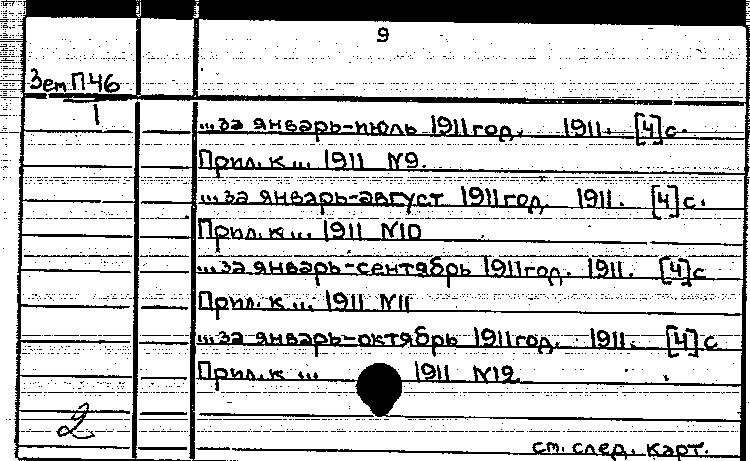 9
Зем П46
1
...за январь-июль 1911 год. 1911. [4]с.
Прил. к ... 1911 N9.
...за январь-август 1911 год. 1911. [4]с.
Прил. к ... 1911 N10
...за январь-сентябрь 1911 год. 1911. [4]с
Прил. к ... 1911 N11
...за январь-октябрь 1911 год. 1911. [4]с
Прил. к ... 1911 N12
2
см. след. карт.